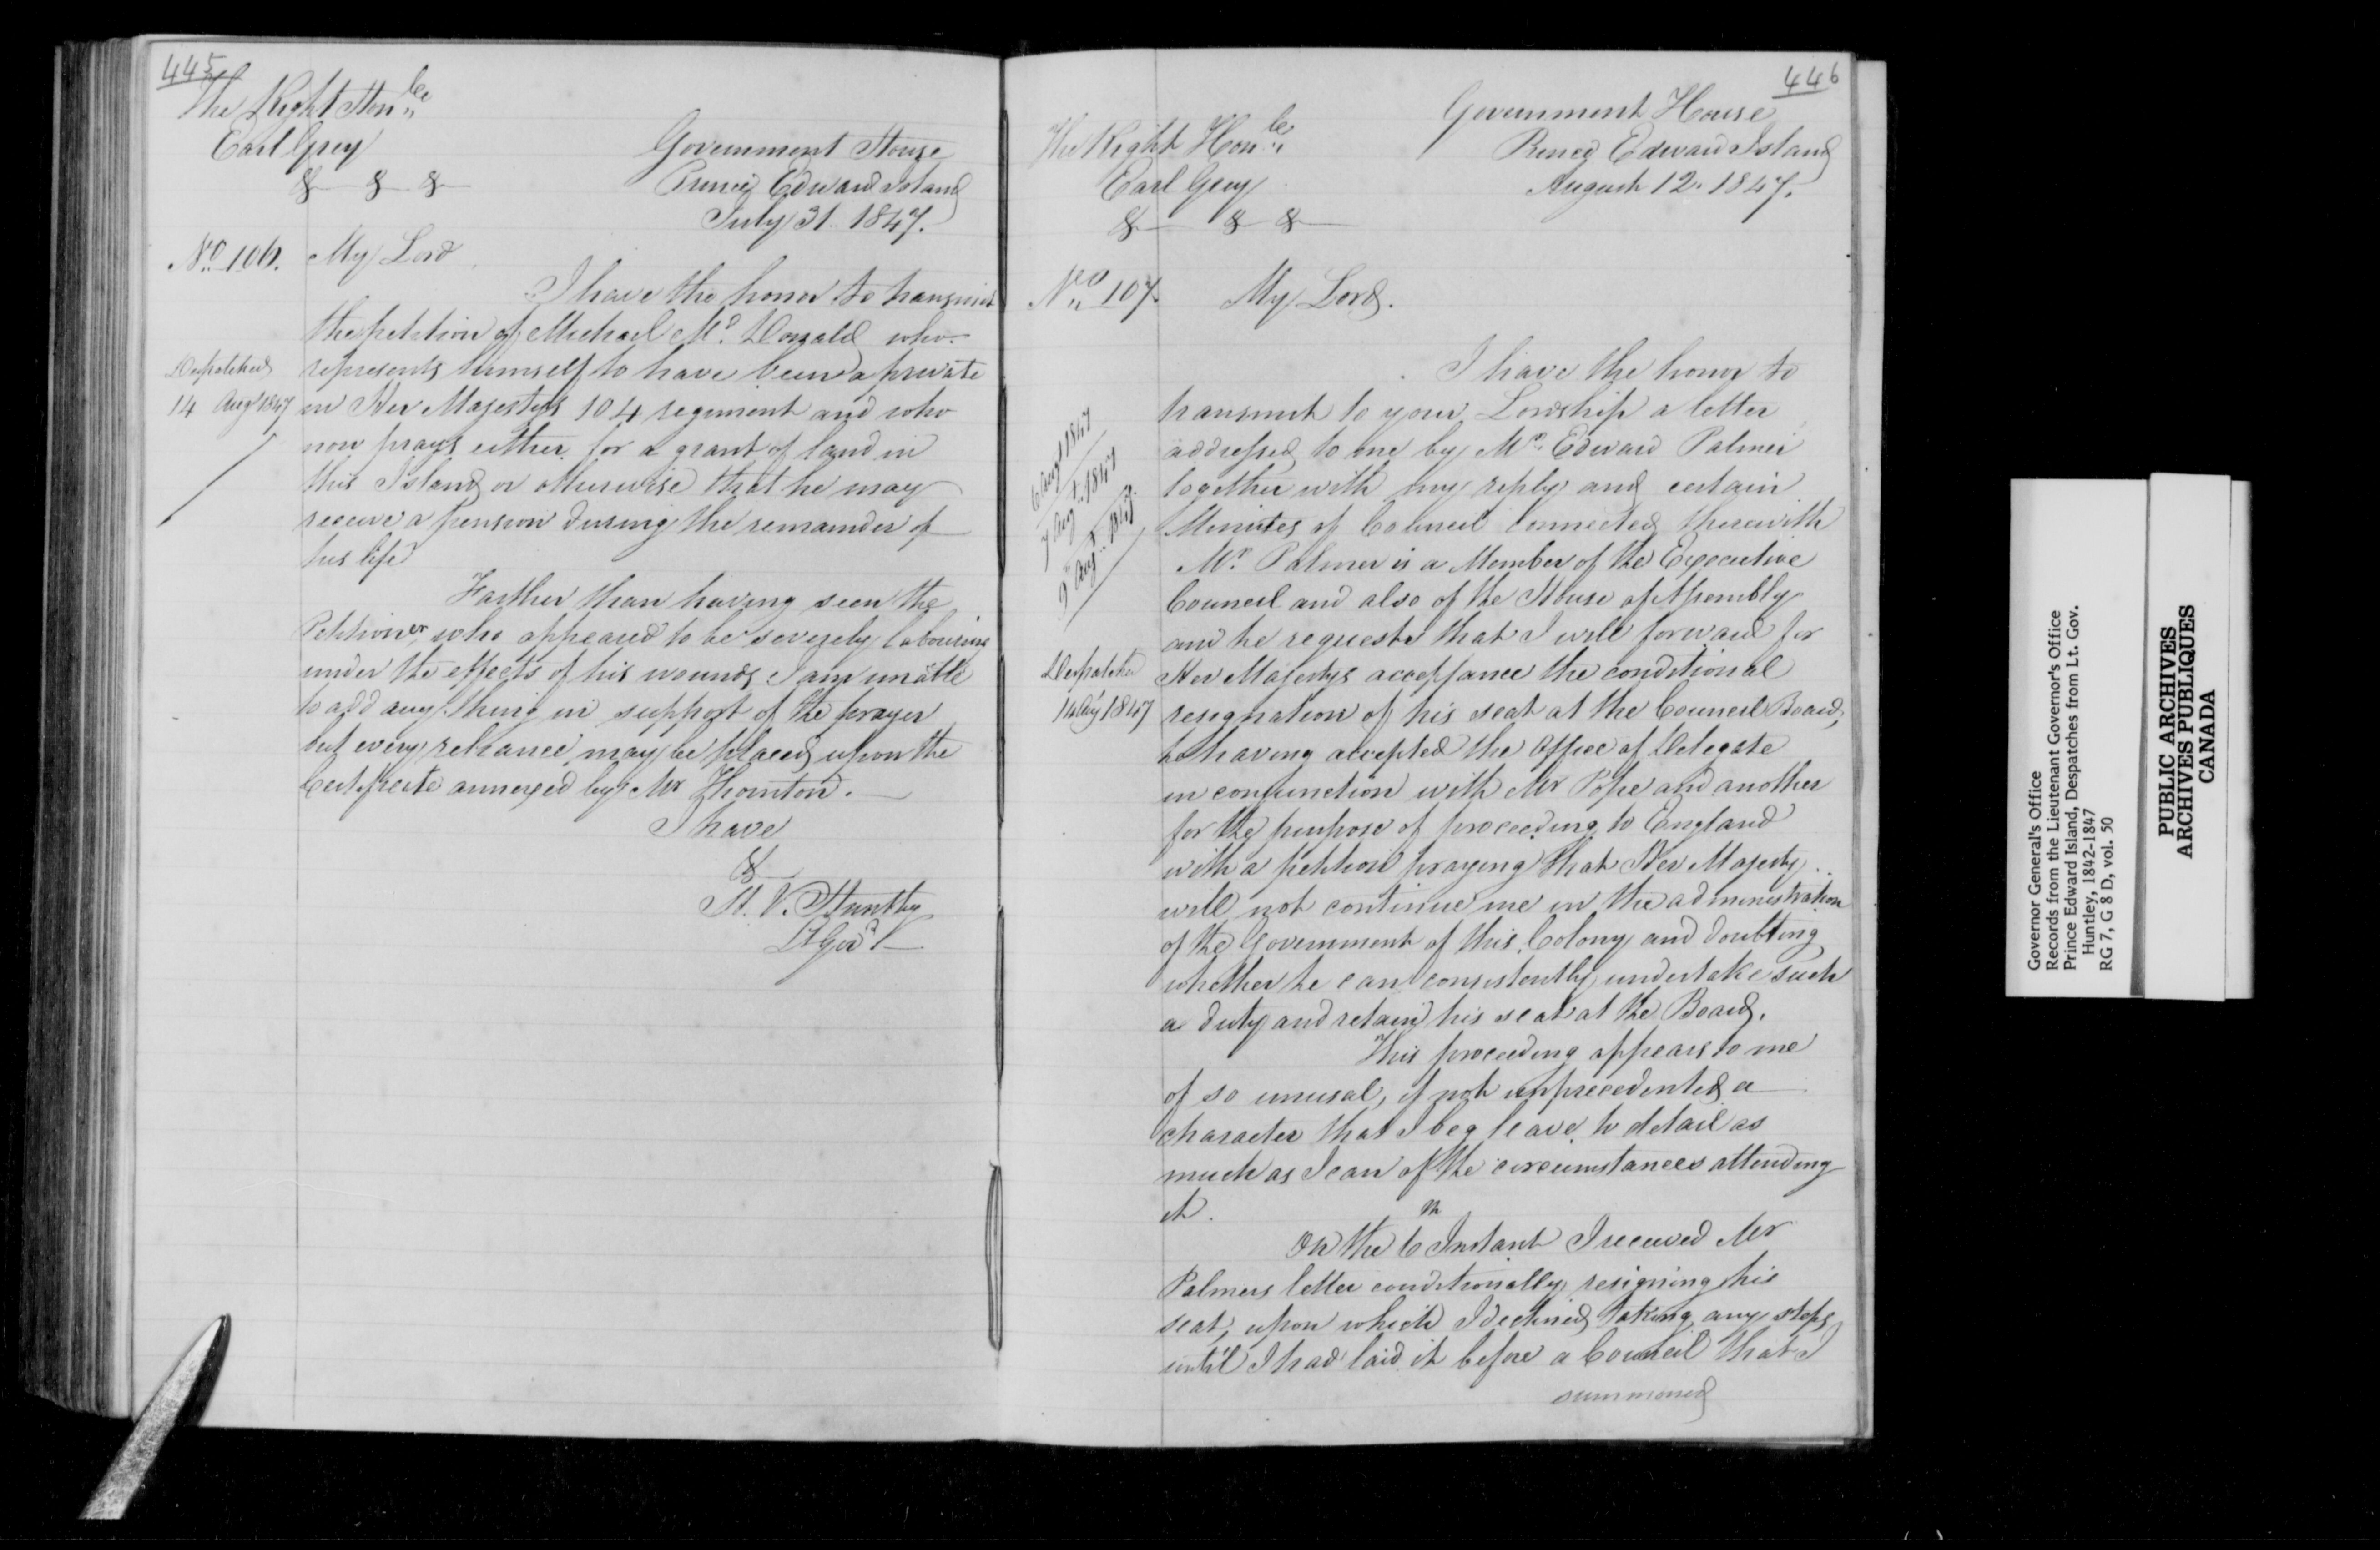 445
The Right Honble
Earl Grey
& & &
Government House
Prince Edward Island
July 31 1847.
No. 106. My Lord
I have the honor to transmit
the petition of Michael Mc.Donald who
represents himself to have been a private
in Her Majestys 104 regiment and who
now prays either for a grant of land in
this Island or otherwise that he may
receive a pension during the remainder of
his life
Despatched
14 Augt 1847
Farther than having seen the
Petitioner, who appeared to be severely labouring
under the effects of his wounds, I am unable
to add any thing in support of the prayer
but every reliance may be placed upon the
Certificate annexed by Mr Thornton.
I have
&
H. V. Huntley
Lt Govr
446
Government House
Prince Edward Island
August 12. 1847.
The Right Honble
Earl Grey
& & &
No. 107. My Lord.
I have the honor to
transmit to your Lordship a letter
addressed to me by Mr. Edward Palmer
together with my reply and certain
Minutes of Council connected therewith
Mr. Palmer is a Member of the Executive
Council and also of the House of Assembly
and he requests that I will forward for
Her Majestys acceptance the conditional
resignation of his seat at the Council Board,
he having accepted the Office of Delegate
in conjunction with Mr Pope and another
for the purpose of proceeding to England
with a petition praying that Her Majesty
will not continue me in the administration
of the Government of this Colony and doubting
whether he can consistently undertake such
a duty and retain his seat at the Board.
6 Augt 1847
7 Augt. 1847
9th Augt. 1847
Despatched
14 Aug 1847
This proceeding appears to me
of so unusal, if not unprecedented a
character that I beg leave to detail as
much as I can of the circumstances attending
it.
On the 6th Instant I received Mr
Palmers letter conditionally resigning his
seat, upon which I declined taking any steps
until I had laid it before a Council that I
summoned
Governor General's Office
Records from the Lieutenant Governor's Office
Prince Edward Island, Despatches from Lt. Gov.
Huntley, 1842-1847
RG 7, G 8 D, vol. 50
PUBLIC ARCHIVES
ARCHIVES PUBLIQUES
CANADA